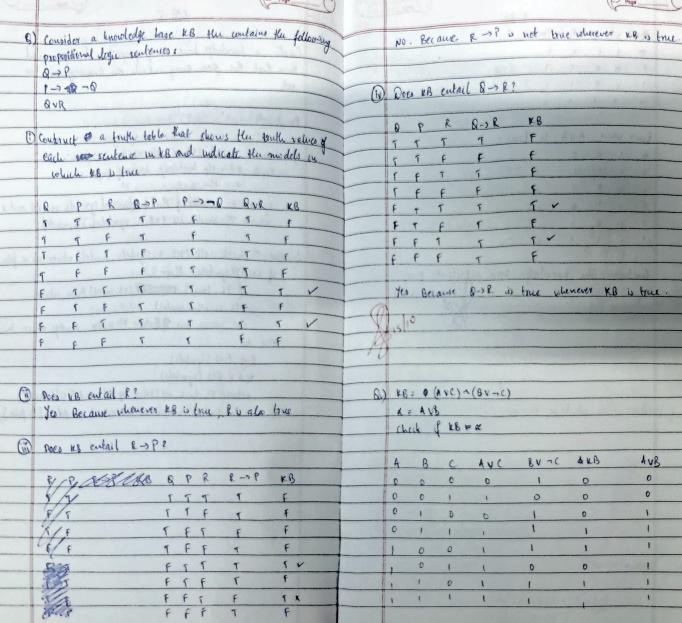 Q) Consider a knowledge base KB the contains the following
propositional logic sentences:
Q→P
P→ ¬Q
QVR
(i) Construct a truth table that shows the truth values of
each sentence in KB and indicate the models in
which KB is true
Q P R Q→P P→¬Q QVR KB
T T T T F T F
T T F T F T F
T F T F T T F
T F F F T T F
F T T T T T T ✓
F T F T T F F
F F T T T T T ✓
F F F T T F F
(ii) Does KB entail R?
Yes Because whenever KB is true, R is also true
(iii) Does KB entail R→P?
Q P R R→P KB
T T T T F
T T F T F
T F T F F
T F F T F
F T T T T ✓
F T F T F
F F T F T x
F F F T F
No. Because R→P is not true wherever KB is true.
(iv) Does KB entail Q→R?
Q P R Q→R KB
T T T T F
T T F F F
T F T T F
T F F F F
F T T T T ✓
F T F T F
F F T T T ✓
F F F T F
Yes Because Q→R is true whenever KB is true.
15/10
Q) KB = (AVC)^(BV¬C)
α = AVB
check if KB ⊨ α
A B C AVC BV¬C KB AVB
0 0 0 0 1 0 0
0 0 1 1 0 0 0
0 1 0 0 1 0 1
0 1 1 1 1 1 1
1 0 0 1 1 1 1
1 0 1 1 0 0 1
1 1 0 1 1 1 1
1 1 1 1 1 1 1